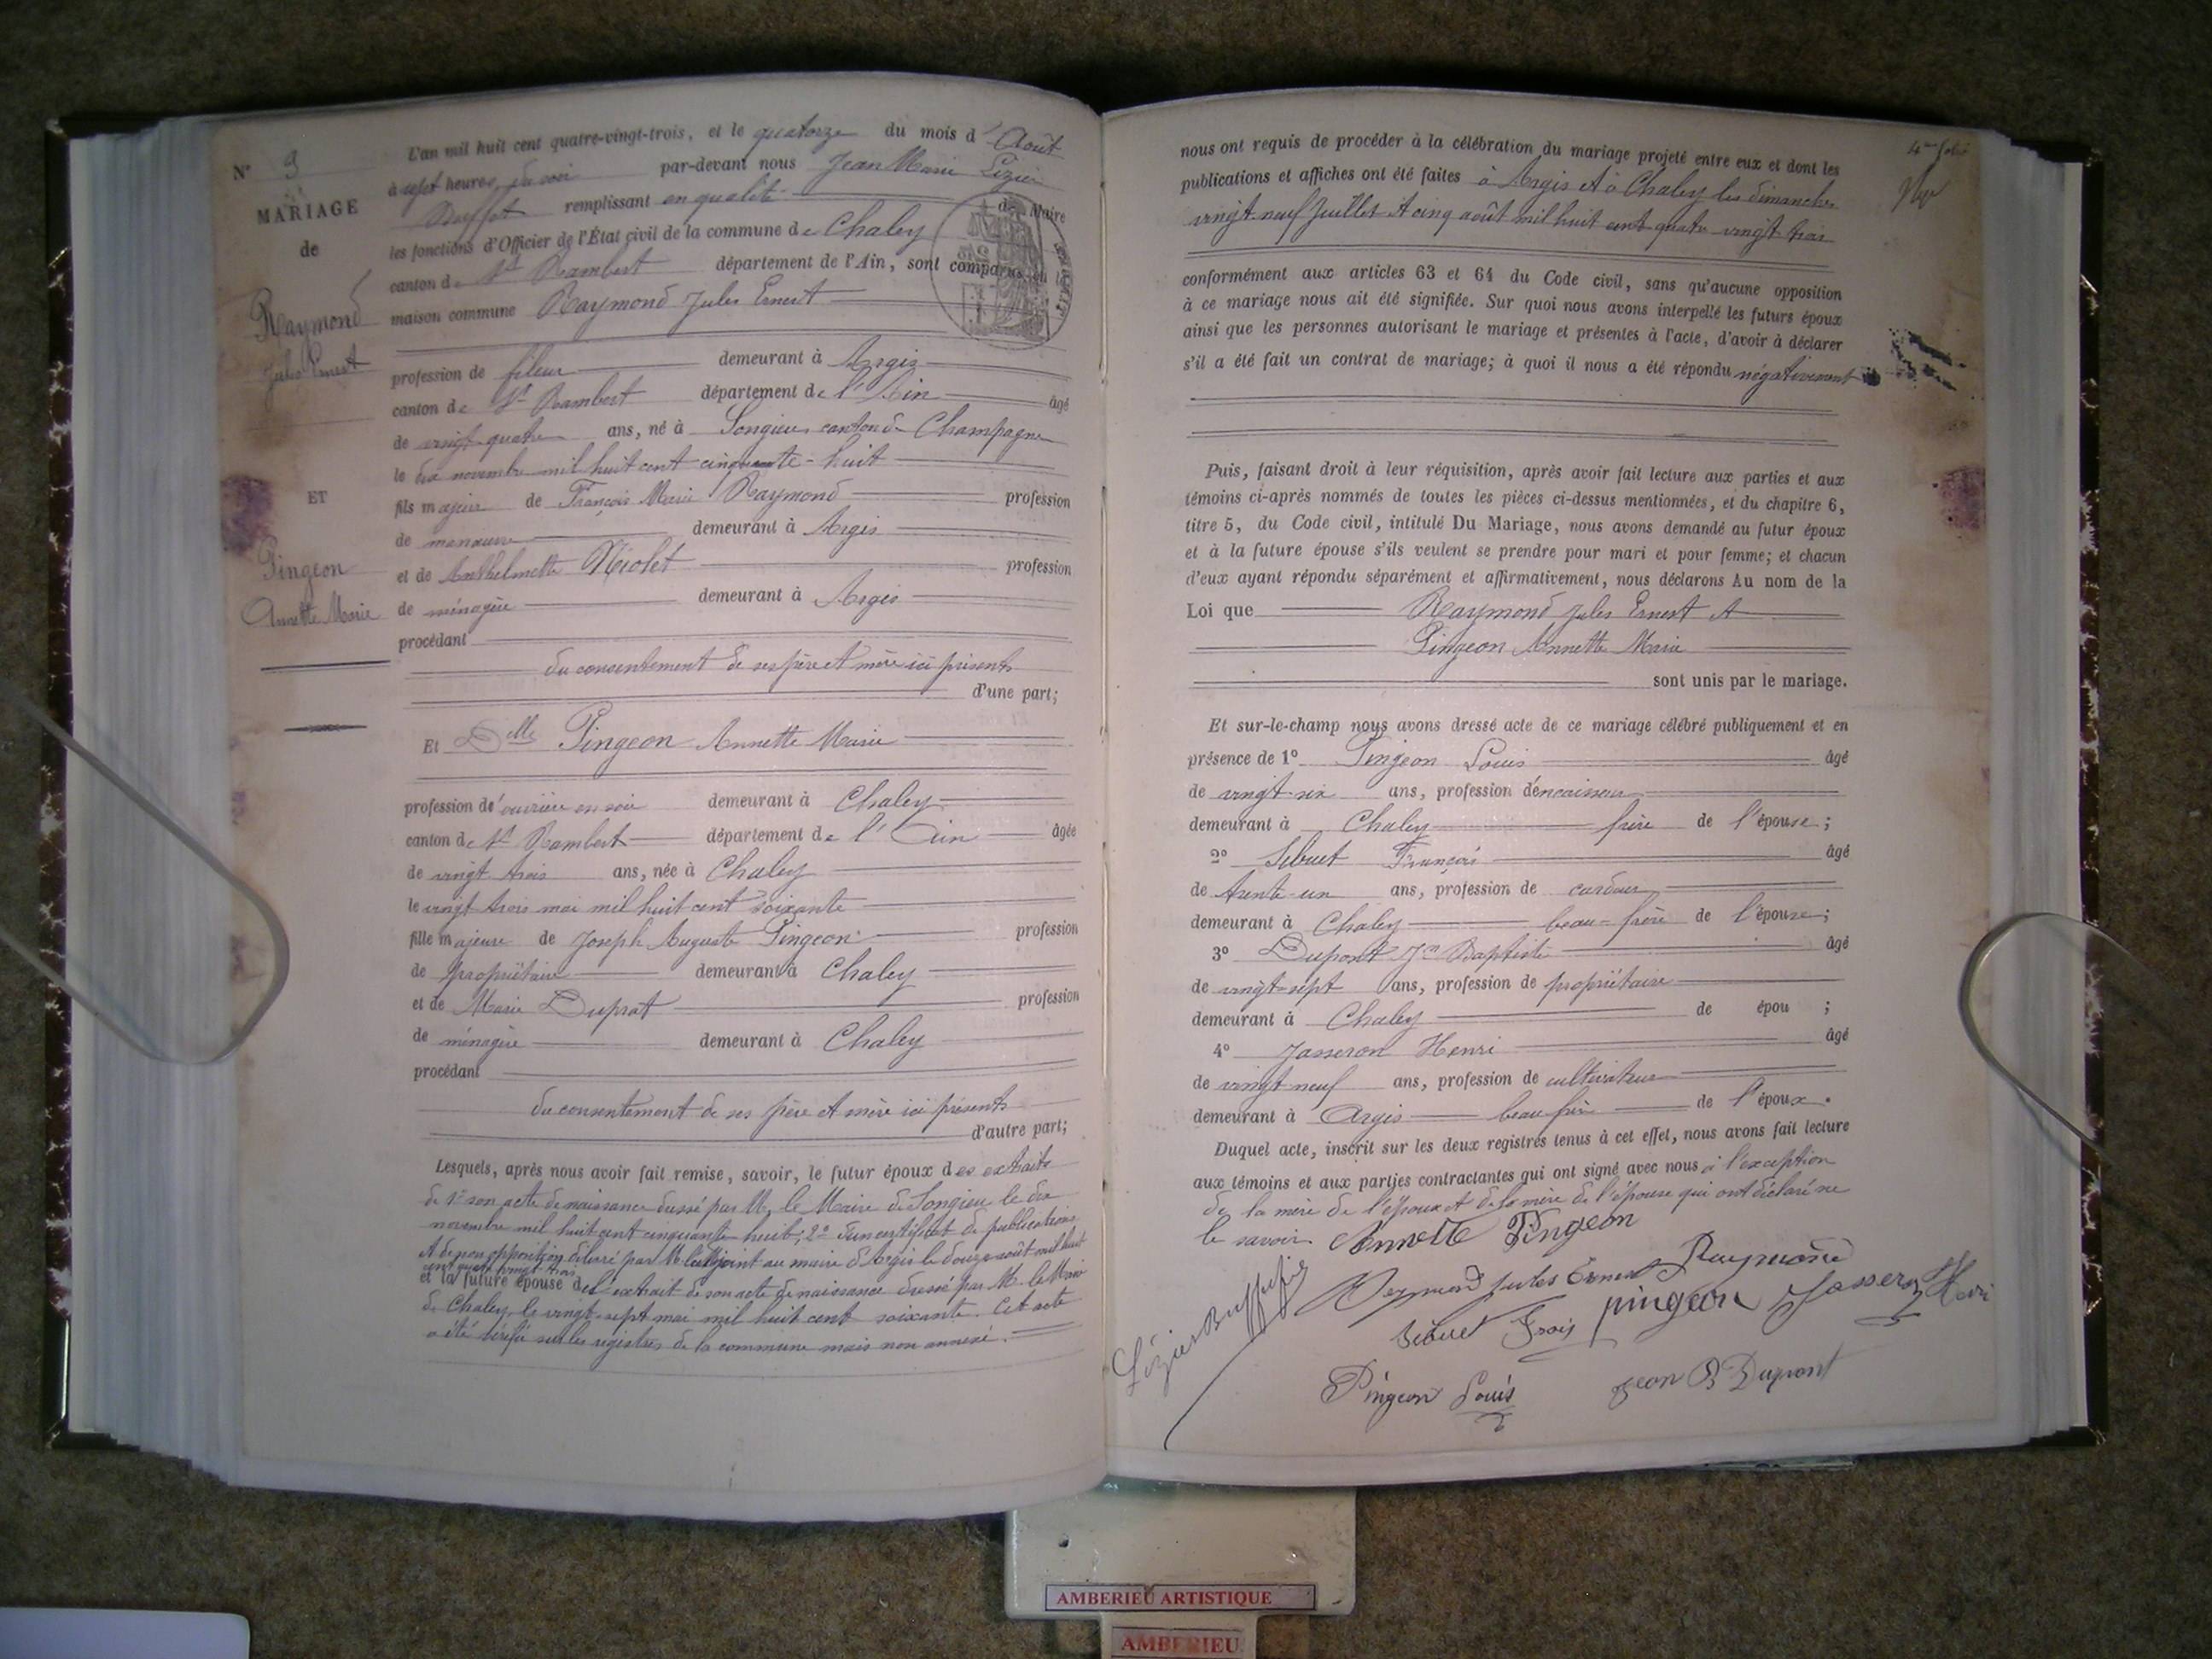 N° 9
MARIAGE
de
Raymond
Jules Ernest
ET
Pingeon
Annette Marie
L'an mil huit cent quatre-vingt-trois, et le quatorze du mois d'Août
à sept heures du soir par-devant nous Jean Marie Lézier
Buffet remplissant en qualité de Maire
les fonctions d'Officier de l'État civil de la commune de Chaley
canton de St Rambert département de l'Ain, sont comparus en la
maison commune Raymond Jules Ernest
profession de fileur demeurant à Argis
canton de St Rambert département de l'Ain âgé
de vingt-quatre ans, né à Songieu canton de Champagne
le dix novembre mil huit cent cinquante-huit
fils majeur de François Marie Raymond profession
de manœuvre demeurant à Argis
et de Anthelmette Niolet profession
de ménagère demeurant à Argis
procédant
du consentement de ses père et mère ici présents
d'une part;
Et Delle Pingeon Annette Marie
profession d'ouvrière en soie demeurant à Chaley
canton de St Rambert département de l'Ain âgée
de vingt trois ans, née à Chaley
le vingt trois mai mil huit cent soixante
fille majeure de Joseph Auguste Pingeon profession
de propriétaire demeurant à Chaley
et de Marie Duprat profession
de ménagère demeurant à Chaley
procédant
du consentement de ses père et mère ici présents
d'autre part;
Lesquels, après nous avoir fait remise, savoir, le futur époux des extraits
de 1° son acte de naissance dressé par M. le Maire de Songieu le dix
novembre mil huit cent cinquante huit; 2° d'un certificat de publications
et de non opposition délivré par M. l'adjoint au maire d'Argis le douze août mil huit
cent quatre vingt trois
et la future épouse de l'extrait de son acte de naissance dressé par M. le Maire
de Chaley le vingt-sept mai mil huit cent soixante. Cet acte
a été vérifié sur les registres de la commune mais non annexé.
nous ont requis de procéder à la célébration du mariage projeté entre eux et dont les
publications et affiches ont été faites à Argis et à Chaley les dimanches
vingt-neuf Juillet et cinq août mil huit cent quatre vingt trois
conformément aux articles 63 et 64 du Code civil, sans qu'aucune opposition
à ce mariage nous ait été signifiée. Sur quoi nous avons interpellé les futurs époux
ainsi que les personnes autorisant le mariage et présentes à l'acte, d'avoir à déclarer
s'il a été fait un contrat de mariage; à quoi il nous a été répondu négativement
Puis, faisant droit à leur réquisition, après avoir fait lecture aux parties et aux
témoins ci-après nommés de toutes les pièces ci-dessus mentionnées, et du chapitre 6,
titre 5, du Code civil, intitulé Du Mariage, nous avons demandé au futur époux
et à la future épouse s'ils veulent se prendre pour mari et pour femme; et chacun
d'eux ayant répondu séparément et affirmativement, nous déclarons Au nom de la
Loi que Raymond Jules Ernest et
Pingeon Annette Marie
sont unis par le mariage.
Et sur-le-champ nous avons dressé acte de ce mariage célébré publiquement et en
présence de 1° Pingeon Louis âgé
de vingt-six ans, profession d'encaisseur
demeurant à Chaley frère de l'épouse;
2° Sibuet François âgé
de trente-un ans, profession de cardeur
demeurant à Chaley beau-frère de l'épouse;
3° Dupont Jn Baptiste âgé
de vingt-sept ans, profession de propriétaire
demeurant à Chaley de épou ;
4° Jasseron Henri âgé
de vingt-neuf ans, profession de cultivateur
demeurant à Argis beau frère de l'époux.
Duquel acte, inscrit sur les deux registres tenus à cet effet, nous avons fait lecture
aux témoins et aux parties contractantes qui ont signé avec nous à l'exception
de la mère de l'époux et de la mère de l'épouse qui ont déclaré ne
le savoir. Annette Pingeon
Raymond Jules Ernest Raymond
Sibuet Frois pingeon Jasseron Henri
Lézier Buffet
Pingeon Louis Jean B Dupont
AMBERIEU ARTISTIQUE
AMBERIEU